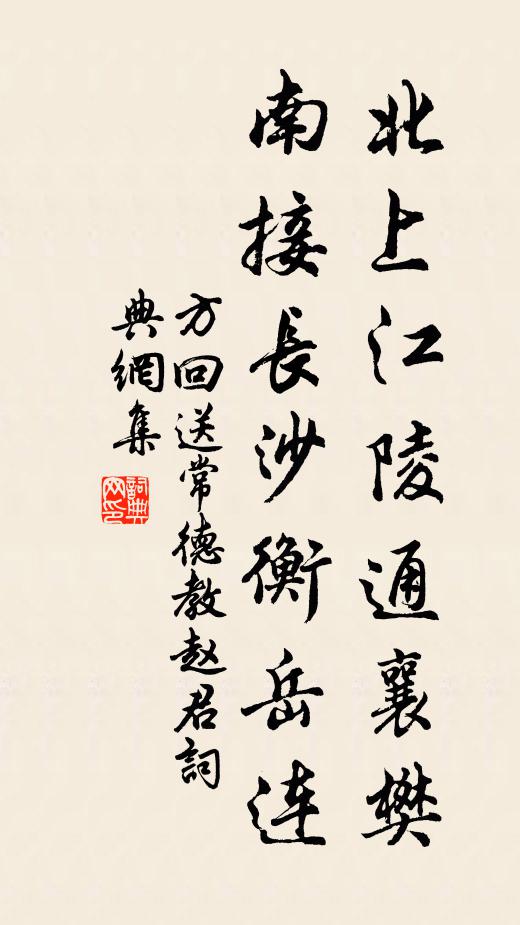 北上江陵通襄樊
南接長沙衡岳連
方回送常德教赵君詞
典網集
詞典
网印